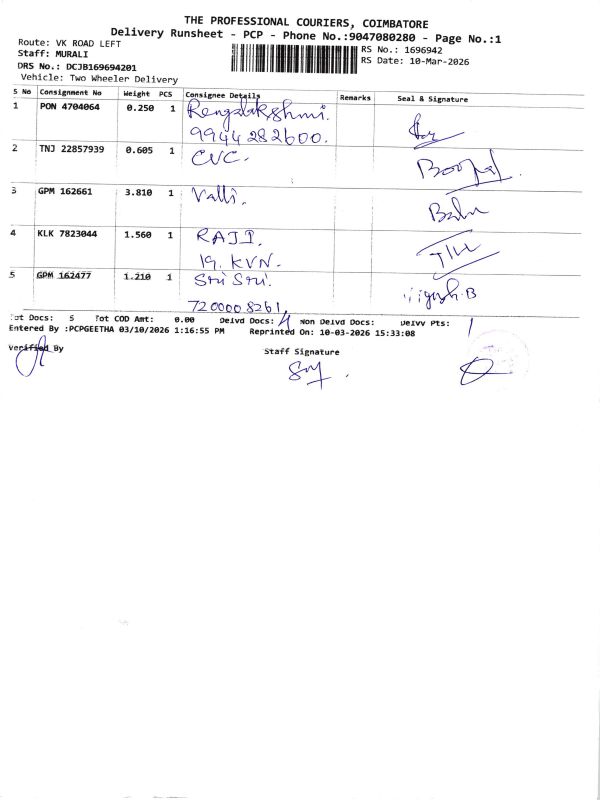 THE PROFESSIONAL COURIERS, COIMBATORE
Delivery Runsheet - PCP - Phone No.:9047080280 - Page No.:1
Route: VK ROAD LEFT
Staff: MURALI
DRS No.: DCJB169694201
Vehicle: Two Wheeler Delivery
RS No.: 1696942
RS Date: 10-Mar-2026
S No Consignment No Weight PCS Consignee Details Remarks Seal & Signature
1 PON 4704064 0.250 1 Rengalakshmi.
9944282600.
2 TNJ 22857939 0.605 1 CVC. Boopal.
3 GPM 162661 3.810 1 Valli. Balu
4 KLK 7823044 1.560 1 RAJI.
19. KVN.
5 GPM 162477 1.210 1 Sri Sri.
7200008261,
Tot Docs: 5 Tot COD Amt: 0.00 Delvd Docs: 4 Non Delvd Docs: Delvv Pts: 1
Entered By :PCPGEETHA 03/10/2026 1:16:55 PM Reprinted On: 10-03-2026 15:33:08
Verified By
Staff Signature